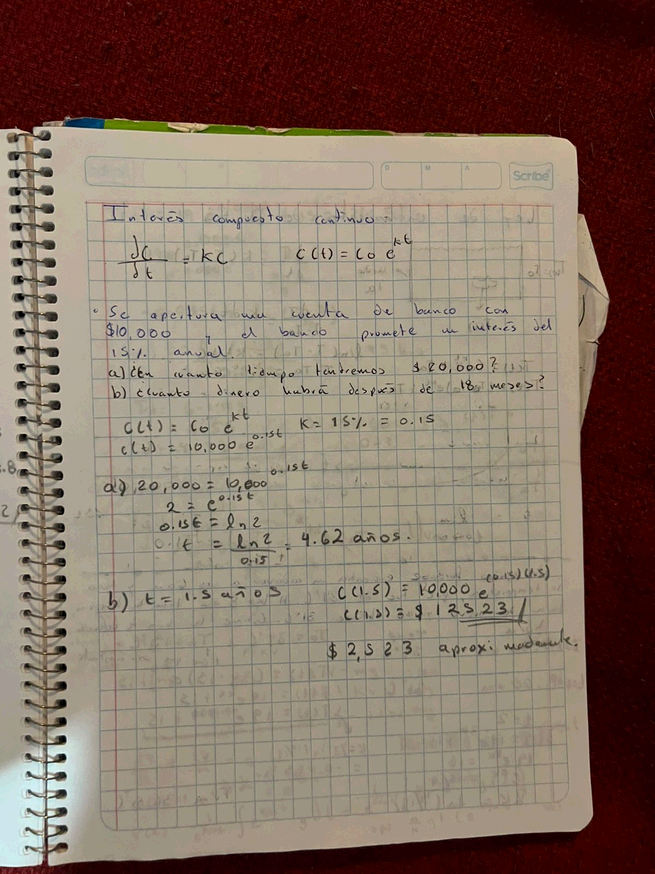 Scribe
D M A
Interés compuesto continuo =
dC/dt = KC C(t) = Co e^kt
• Se apertura una cuenta de banco con
$10,000 y el banco promete un interés del
15% anual.
a) ¿En cuanto tiempo tendremos $20,000?
b) ¿Cuanto dinero habrá después de 18 meses?
C(t) = Co e^kt K = 15% = 0.15
C(t) = 10,000 e^0.15t
a) 20,000 = 10,000^0.15t
2 = e^0.15t
0.15t = ln2
t = ln2/0.15 = 4.62 años.
b) t = 1.5 años C(1.5) = 10,000 e^(0.15)(1.5)
C(1.5) = $12523/
$2,523 aproximadamente.